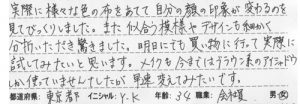 実際に様々な色の布をあてて自分の顔の印象が変わるのを
見てびっくりしました。また似合う模様やデザインも細かく
分析いただき驚きました。明日にでも買い物に行って実際に
試してみたいと思います。メイクも今まではブラウン系のアイシャドウ
しか使っていませんでしたが早速変えてみたいです。
都道府県: 東京都 イニシャル: Y.K 年齢: 34 職業: 会社員 男・女